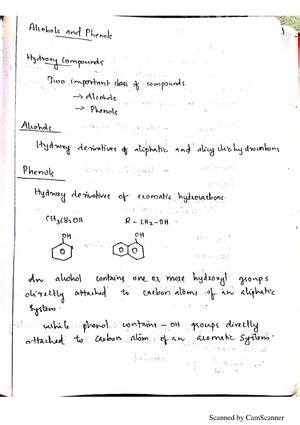 Alcohols and Phenols
1
Hydroxy Compounds
Two important class of compounds
→ Alcohols
→ Phenols
Alcohols
Hydroxy derivatives of aliphatic and alicyclic hydrocarbons
Phenols
Hydroxy derivatives of aromatic hydrocarbons
CH3CH2OH R - CH2 - OH
OH OH
An alcohol contains one or more hydroxyl groups
directly attached to carbon atoms of an aliphatic
System.
While phenol contains - OH groups directly
attached to carbon atom of an aromatic System.
Scanned by CamScanner